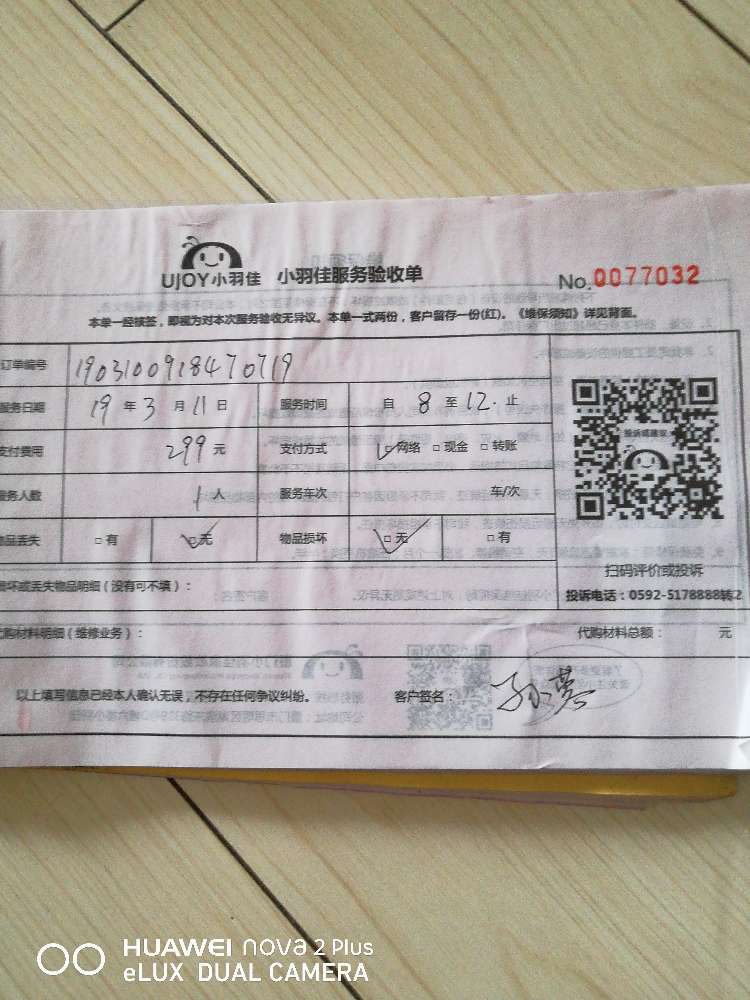 UJOY小羽佳 小羽佳服务验收单 No.0077032
本单一经核签，即视为对本次服务验收无异议。本单一式两份，客户留存一份(红)。《维保须知》详见背面。
订单编号 1903100918470719
服务日期 19 年 3 月 11 日 服务时间 自 8 至 12. 止
支付费用 299 元 支付方式 □网络 □现金 □转账
服务人数 1 人 服务车次 车/次
物品丢失 □有 □无 物品损坏 □无 □有
投诉或建议
扫码评价或投诉
损坏或丢失物品明细（没有可不填）： 投诉电话：0592-5178888转2
代购材料明细（维修业务）： 代购材料总额： 元
以上填写信息已经本人确认无误，不存在任何争议纠纷。 客户签名：
HUAWEI nova 2 Plus
eLUX DUAL CAMERA